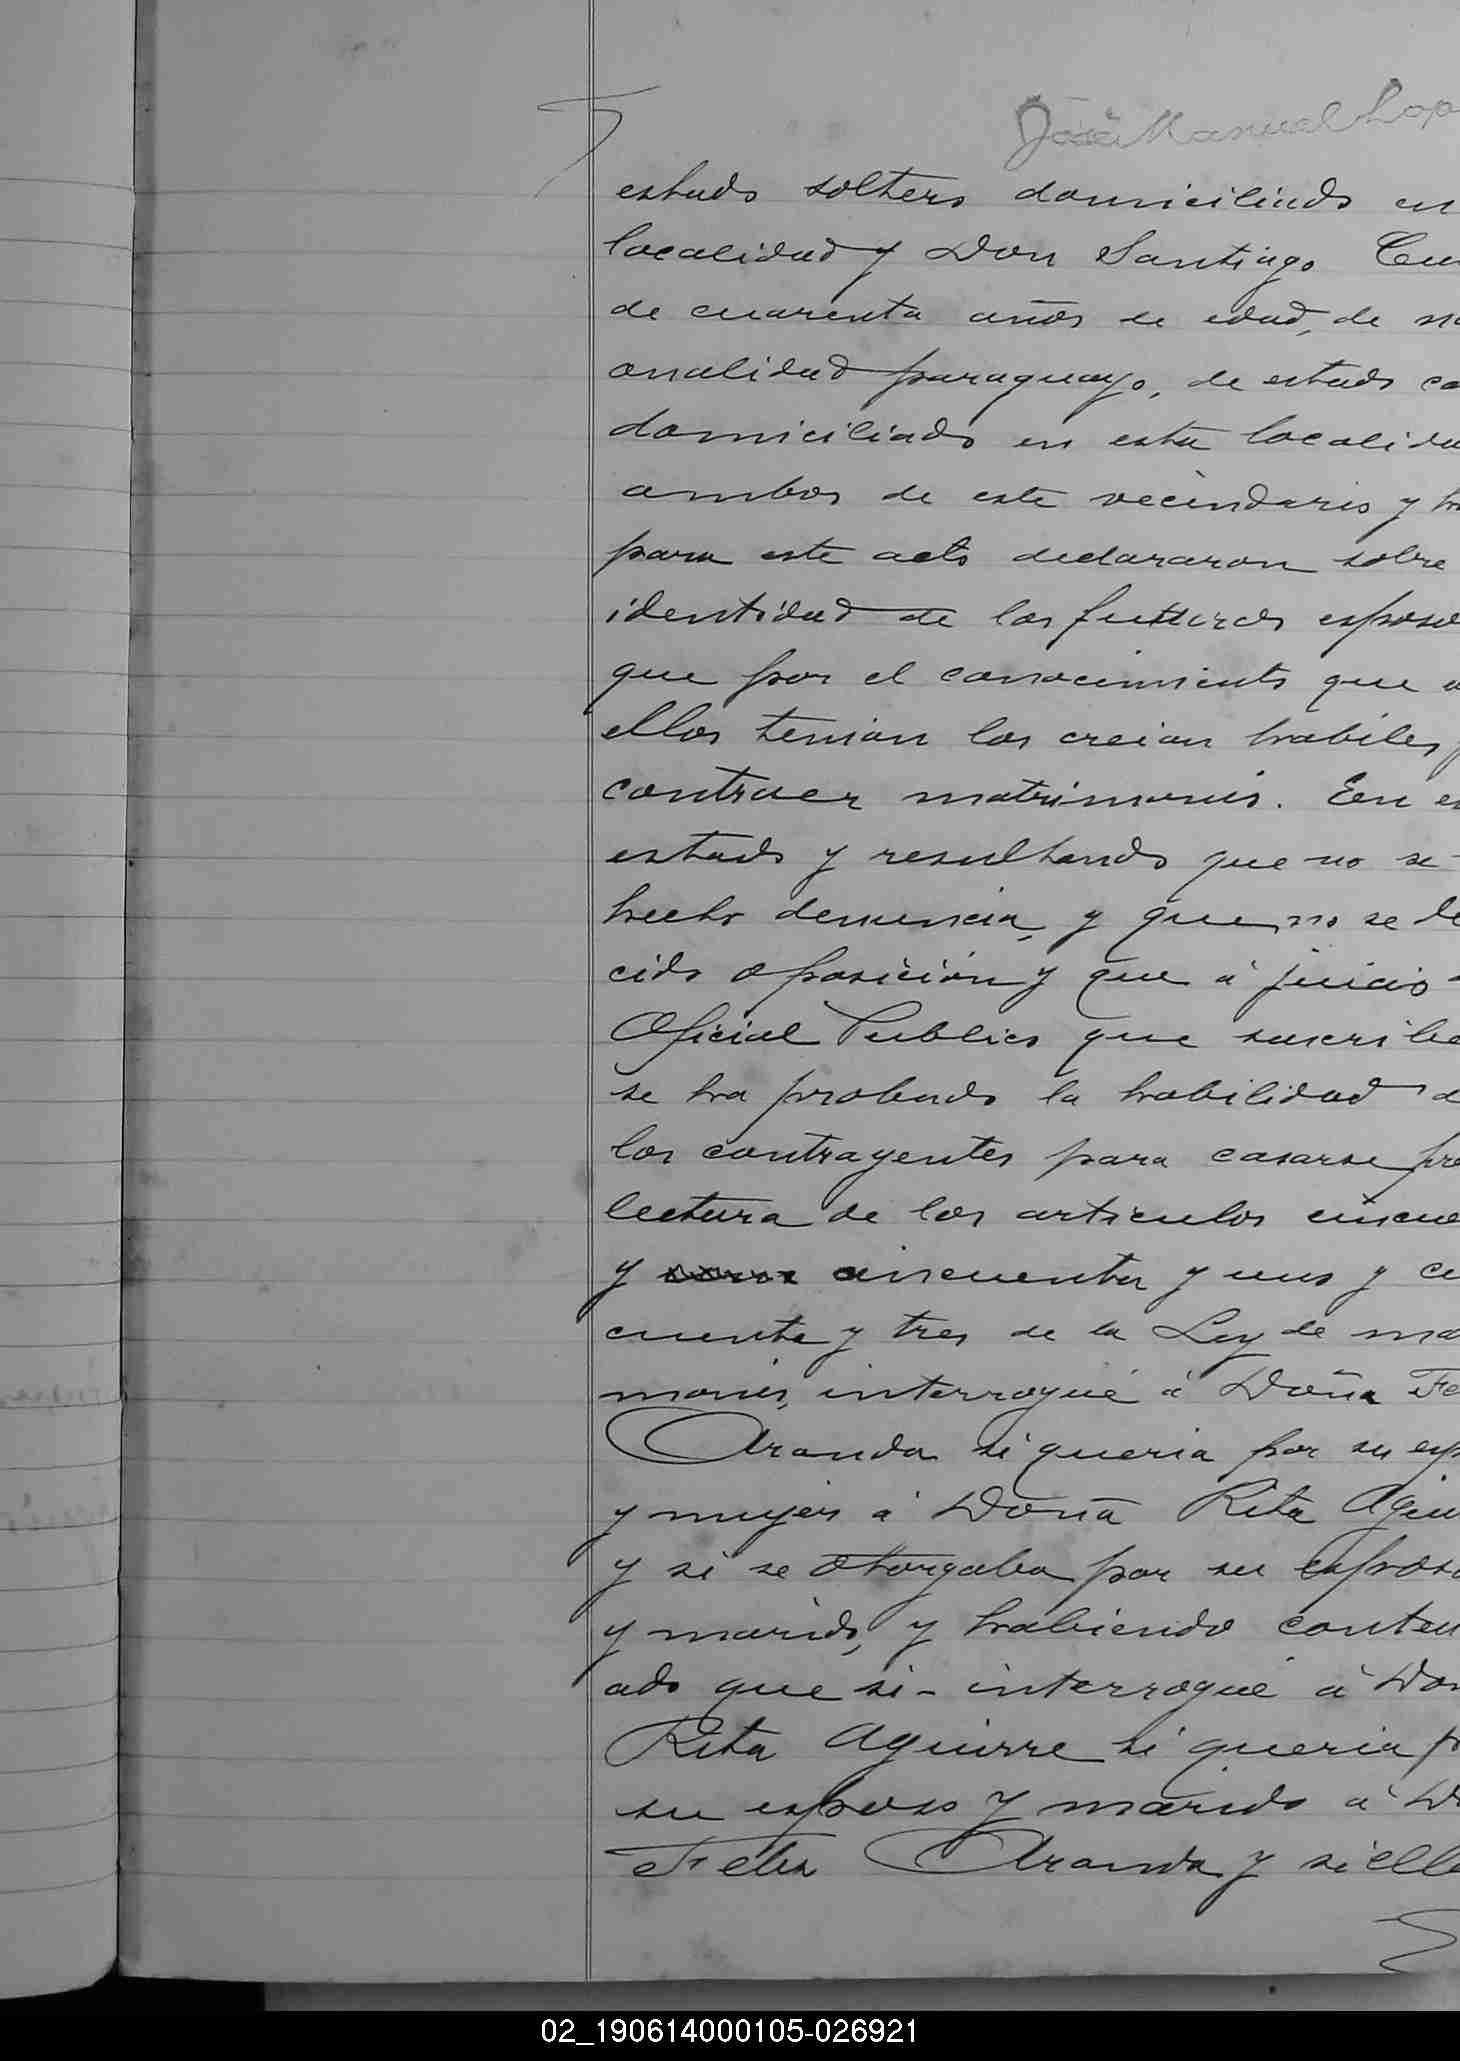 José Manuel Lop
estado soltero domiciliado en
localidad y Don Santiago
de cuarenta años de edad, de na
onalidad paraguayo, de estado ca
domiciliado en esta localida
ambos de este vecindario y ha
para este acto declararon sobre
identidad de los futuros esposo
que por el conocimiento que
ellos tenian los creian habiles p
contraer matrimonio. Een es
estado y resultando que no se
hecho denuncia, y que no se de
cido oposición y que á juicio
Oficial Publico que suscribe
se ha probado la habilidad d
los contrayentes para casarse pre
lectura de los articulos cincue
y cincuenta y uno y ci
cuenta y tres de la Ley de ma
monio, interrogué á Doña Fe
Aranda si queria por su esp
y mujer á Doña Rita Agui
y si se otorgaba por su esposo
y marido, y habiendo contes
ado que si - interrogué á Don
Rita Aguirre si queria p
su esposo y marido á Do
Felix Aranda y si elle
02_190614000105-026921